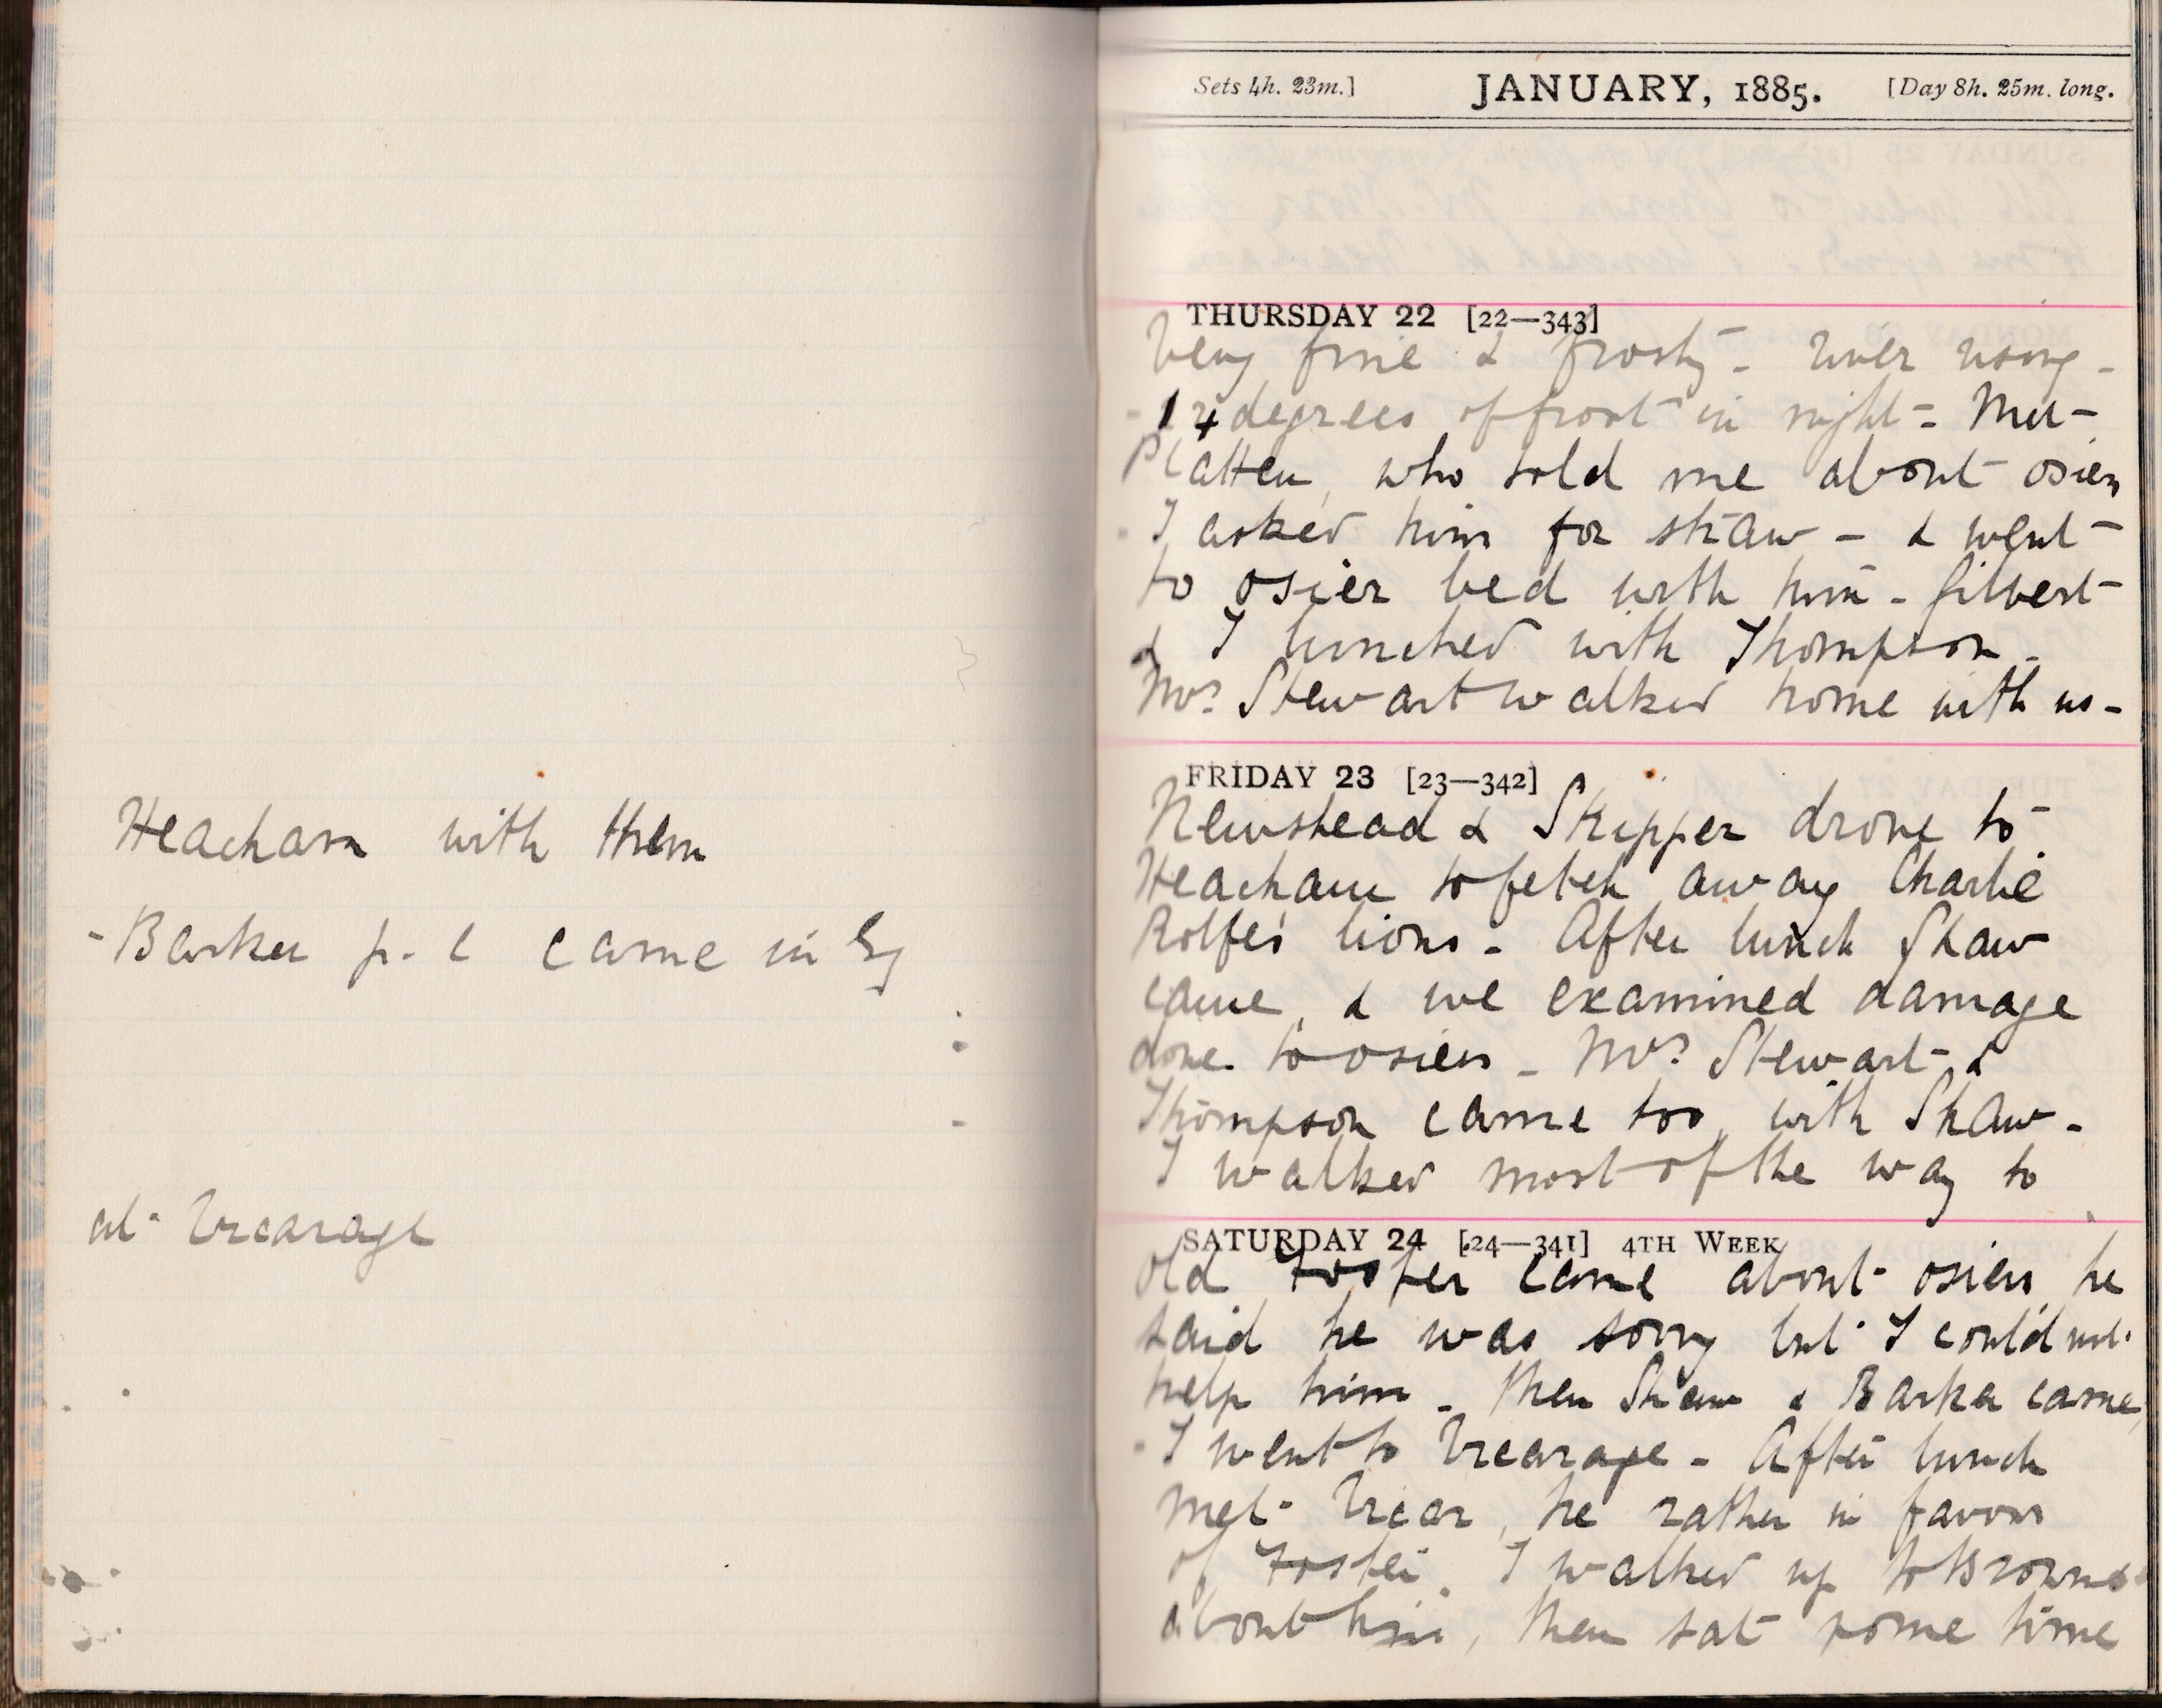 Heacham with them
- Barker p. c came in Eg
at Vicarage
Sets 4h. 23m.] JANUARY, 1885. [Day 8h. 25m. long.
THURSDAY 22 [22—343]
Very fine & frosty - river rising -
- 14 degrees of frost in night - Met
Platten, who told me about osiers
- I asked him for straw - & went
to osier bed with him - Gilbert
& I lunched with Thompson -
Mrs Stewart walked home with us -
FRIDAY 23 [23—342]
Newshead & Skipper drove to
Heacham to fetch away Charlie
Rolfe's lions - After lunch Shaw
came, & we examined damage
done to osiers - Mrs Stewart &
Thompson came too, with Shaw -
I walked most of the way to
SATURDAY 24 [24—341] 4TH WEEK
Old Foster came about osiers, he
said he was sorry but I could not
help him - Then Shaw & Barker came,
- I went to Vicarage - After lunch
met Vicar, he rather in favour
of Foster. I walked up to Browns
about him, then sat some time